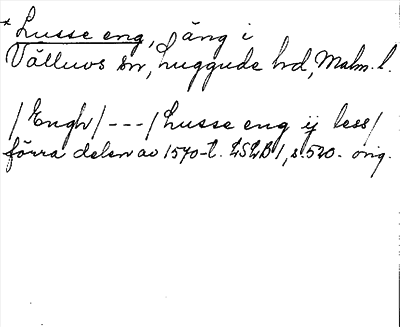 *Lusse eng, äng i
Välluvs sn, Luggude hd, Malm. l.
/Engh/---/Lusse eng ij less/
förra delen av 1570-t. LSLB 1, s. 520. orig.